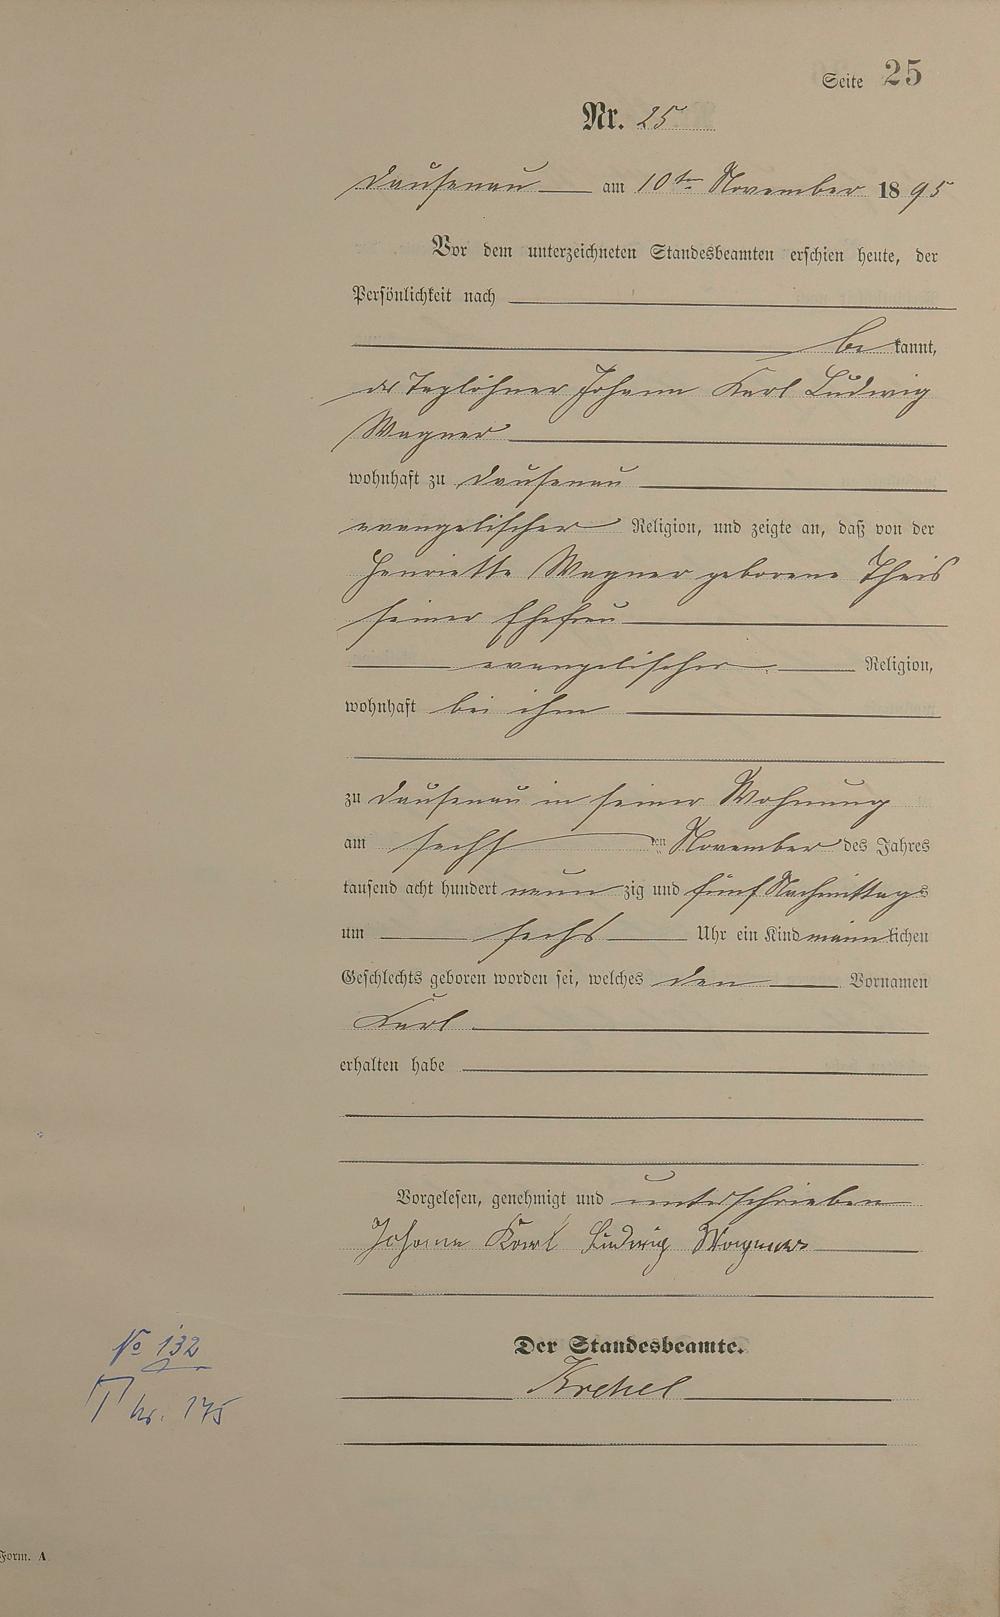 Seite 25
Nr. 25
Dausenau am 10ten November 1895
Vor dem unterzeichneten Standesbeamten erschien heute, der
Persönlichkeit nach
bekannt,
der Taglöhner Johann Karl Ludwig
Wagner
wohnhaft zu Dausenau
evangelischer Religion, und zeigte an, daß von der
Henriette Wagner geborene Theis
seiner Ehefrau
evangelischer Religion,
wohnhaft bei ihm
zu Dausenau in seiner Wohnung
am sechsten November des Jahres
tausend acht hundert neunzig und fünf Nachmittags
um sechs Uhr ein Kind männlichen
Geschlechts geboren worden sei, welches den Vornamen
Karl
erhalten habe
Vorgelesen, genehmigt und unterschrieben
Johann Karl Ludwig Wagner
Der Standesbeamte.
No 132
nr. 175
Form. A